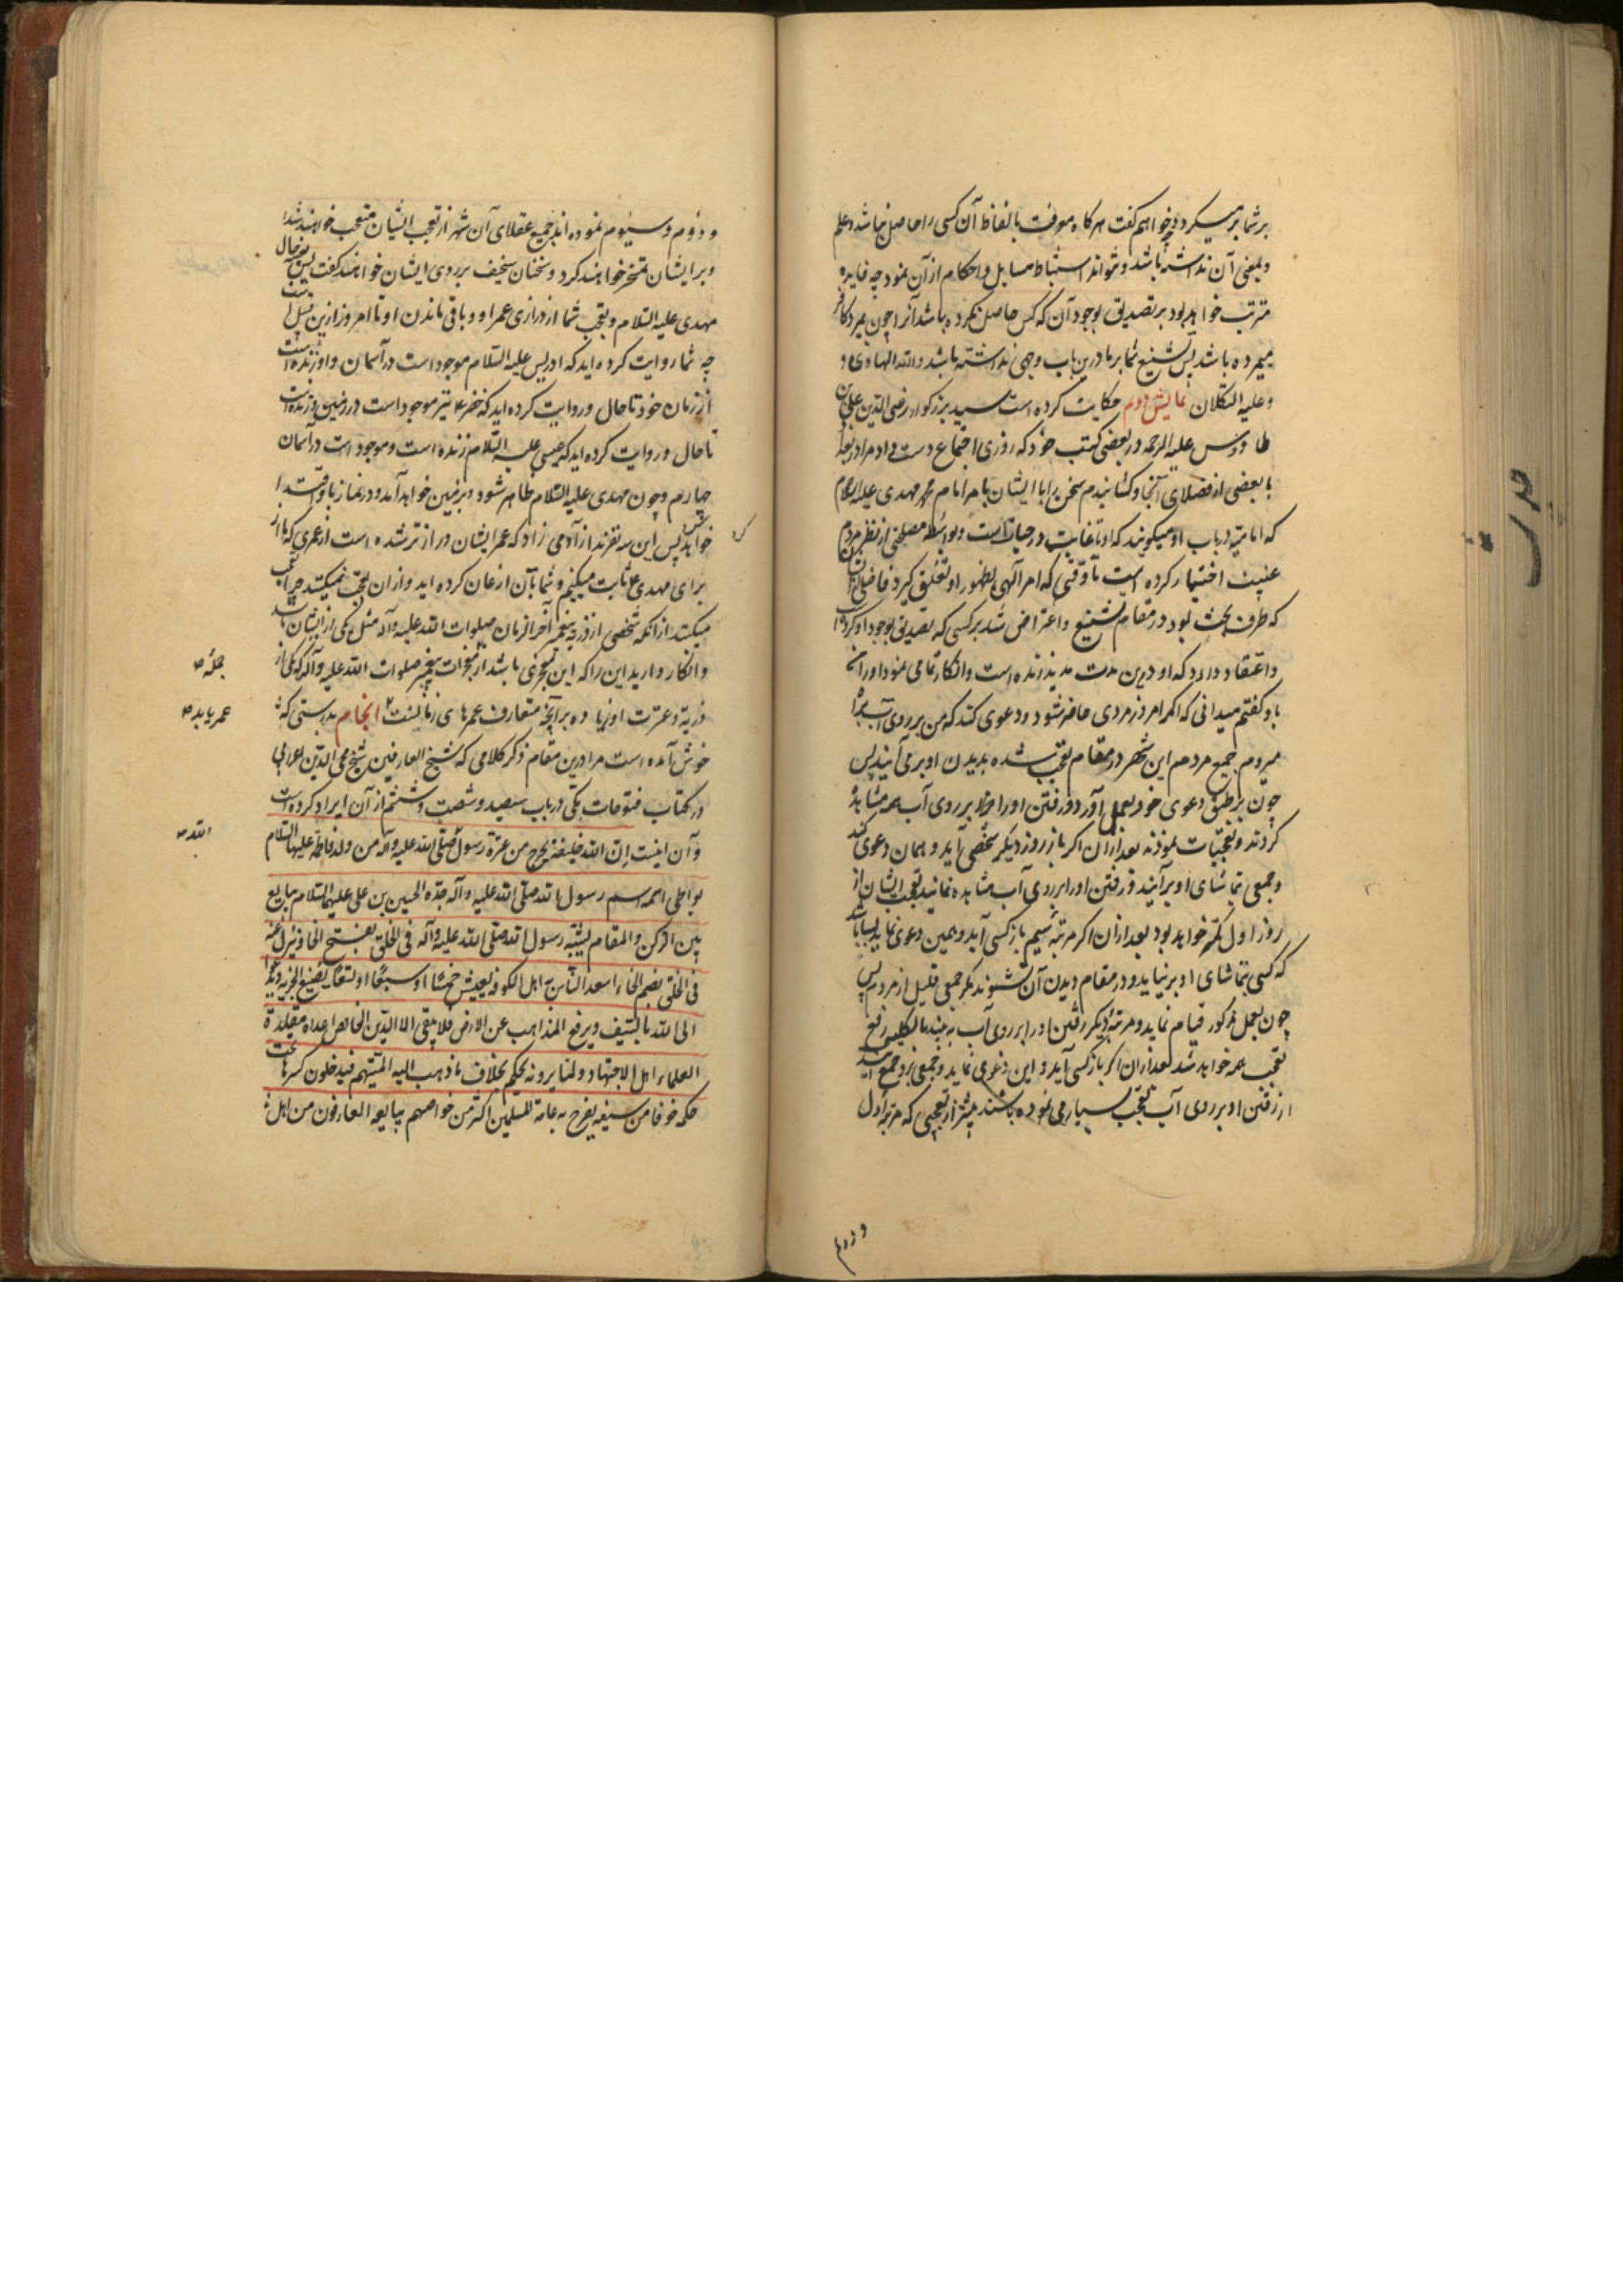 بر شما بر میکردد و خواهم کفت هرکاه معرفت بالفاظ آن کسی را حاصل نباشد و علم
و بمعنی آن نداشته باشد و نتواند استنباط مسایل و احکام از آن نمود چه فایده
مترتب خواهد بود بر تصدیق بوجود آن که کس حاصل نکرده باشد آنرا چون بمیرد کافر
میمرده باشد پس تشنیع شما بر ما درین باب وجهی نداشته باشد والله الهادی و
وعلیه التکلان نمایش دوم حکایت کرده است سید بزرکوار رضی الدین علی بن
طاووس علیه الرحمه در بعضی کتب خود که روزی اجتماع دست داد مرا در بغداد
با بعضی از فضلای آنجا و کشانیدم سخن را با ایشان بامر امام محمد مهدی علیه السلام
که امامیه در باب او میکویند که او تا غایت در حیات است و بواسطه مصلحتی از نظر مردم
غیبت اختیار کرده است تا وقتی که امر آلهی بظهور او تعلق کیرد فاضلی از ایشان
که طرف بحث بود در مقام تشنیع و اعتراض شد بر کسی که تصدیق بوجود او کرده است
و اعتقاد دارد که او درین مدت مدید زنده است و انکار تمامی نمود او را
با و کفتم میدانی که اکر امروز مردی حاضر شود و دعوی کند که من بر روی آب براه
میروم جمیع مردم این شهر در مقام تعجب شده بدیدن او بر می آیند پس
چون بر طبق دعوی خود بعمل آورد و رفتن او را بر روی آب همه مشاهده
کردند و تعجبات نمودند بعد از آن اکر باز روز دیکر شخصی آید و همان دعوی کند
و جمعی بتماشای او بر آیند و رفتن او را بر روی آب مشاهده نمایند تعجب ایشان از
روز اول کمتر خواهد بود بعد از آن اکر مرتبه سیم باز کسی آید و همین دعوی نماید بسا باشد
که کسی بتماشای او بر نیاید و در مقام دیدن آن نشوند مکر جمعی قلیل از مردم پس
چون بعمل مذکور قیام نماید و مرتبه دیکر رفتن او را بر روی آب به بینند بالکلیه رفع
تعجب همه خواهد شد بعد از آن اکر باز کسی آید و این دعوی نماید و جمعی
از رفتن او بر روی آب تعجب بسیار می نموده باشند بیشتر از تعجبی که مرتبه اول
و دوم
و دوم و سیوم نموده اند جمیع عقلای آن شهر از تعجب ایشان متعجب خواهند شد
و بر ایشان تمسخر خواهند کرد و سخنان سخیف بر روی ایشان خواهند کفت پس حال
مهدی علیه السلام و تعجب شما از درازی عمر او و باقی ماندن او تا امروز ازین قبیل است
چه شما روایت کرده اید که ادریس علیه السلام موجود است در آسمان و او زنده است
از زمان خود تا حال و روایت کرده اید که خضر ع نیز موجود است در زمین و زنده است
تا حال و روایت کرده اید که عیسی علیه السلام زنده است و موجود است در آسمان
چهارم و چون مهدی علیه السلام ظاهر شود بزمین خواهد آمد و در نماز باو اقتدا
خواهد پس این سه نفرند از آدمی زاد که عمر ایشان دراز تر شده است از عمری که ما از
برای مهدی ع ثابت میکنیم و شما بآن اذعان کرده اید و از آن تعجب نمیکنید چرا تعجب
میکنید از آنکه شخصی از ذریه پیغمبر آخر الزمان صلوات الله علیه و آله مثل یکی از ایشان باشد
و انکار دارید این را که این معجزی باشد از معجزات پیغمبر صلوات الله علیه و آله که یکی از
جمله
ذریة و عترت او زیاده بر آنچه متعارف عمرهای زمانست انجام بدرستی که
عمر یابد
خوش آمده است مرا درین مقام ذکر کلامی که شیخ العارفین شیخ محی الدین اعرابی
در کتاب فتوحات مکی در باب سیصد و شصت و ششم از آن ایراد کرده است
و آن اینست ان الله خلیفة یخرج من عترة رسول صلی الله علیه و آله من ولد فاطمة علیها السلام
الله
یواطی اسمه اسم رسول الله صلی الله علیه و آله جده الحسین بن علی علیهما السلام یبایع
بین الرکن و المقام یشبه رسول الله صلی الله علیه و آله فی الخلق بفتح الخاء و ینزل عنه
فی الخلق بضم الخاء اسعد الناس به اهل الکوفه یعیش خمسا او سبعا او تسعا یضع الجزیه و یدعوا
الی الله بالسیف و یرفع المذاهب عن الارض فلا یبقی الا الدین الخالص اعداه مقلدة
العلماء اهل الاجتهاد و لما یرونه یحکم بخلاف ما ذهب الیه ائمتهم فیدخلون کرها تحت
حکمه خوفا من سیفه یفرح به عامة المسلمین اکثر من خواصهم یبایعه العارفون من اهل